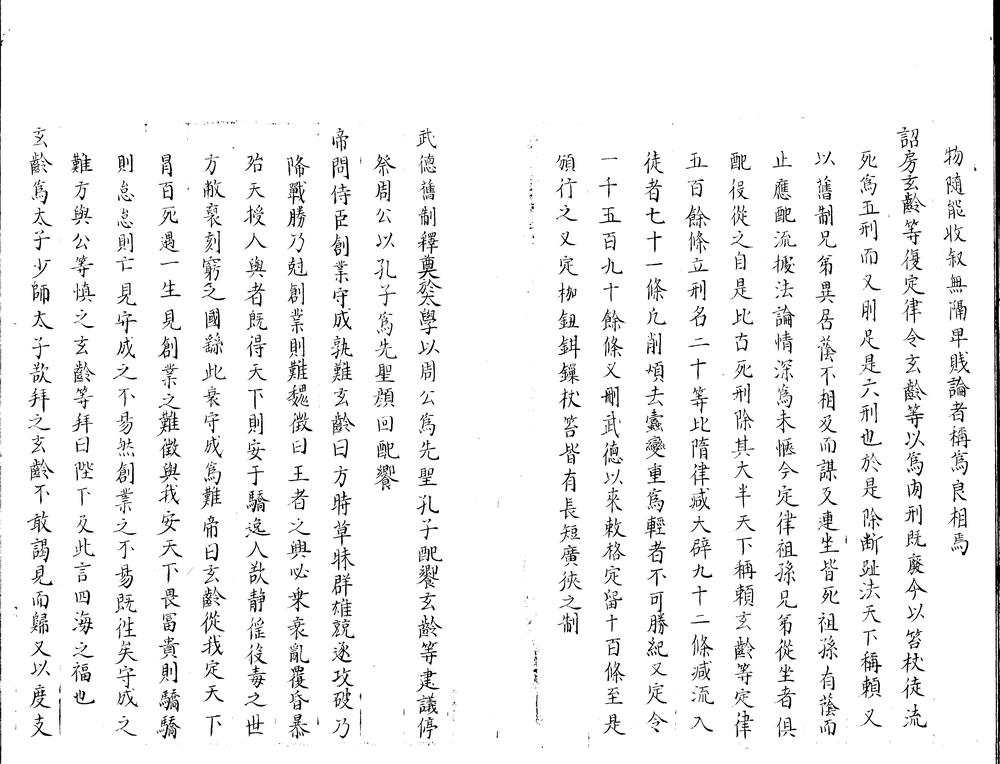 物隨能收叙無隔卑賎論者稱爲良相焉
詔房玄齡等復定律令玄齡等以爲肉刑既廢今以笞杖徒流
死爲五刑而又刖足是六刑也於是除断趾法天下稱賴又
以舊制兄弟異居蔭不相及而謀反連坐皆死祖孫有蔭而
止應配流據法論情深爲未愜今定律祖孫兄弟從坐者俱
配役從之自是比古死刑除其大半天下稱賴玄齡等定律
五百餘條立刑名二十等比隋律减大辟九十二條减流入
徒者七十一條凡削煩去蠹變重爲輕者不可勝紀又定令
一千五百九十餘條又刪武德以來敕格定留十百條至是
頒行之又定枷鈕鉗鏁杖笞皆有長短廣狹之制
武德舊制釋奠於太學以周公爲先聖孔子配饗玄齡等建議停
祭周公以孔子爲先聖顔回配饗
帝問侍臣創業守成孰難玄齡曰方時草昧群雄競逐攻破乃
降戰勝乃尅創業則難魏徴曰王者之興必乗衰亂覆昏暴
殆天授人與者既得天下則安于驕逸人欲静徭役毒之世
方敝裒刻窮之國繇此衰守成爲難帝曰玄齡從我定天下
冐百死遇一生見創業之難徴與我安天下畏冨貴則驕驕
則怠怠則亡見守成之不易然創業之不易既徃矣守成之
難方與公等慎之玄齡等拜曰陛下及此言四海之福也
玄齡爲太子少師太子欲拜之玄齡不敢謁見而歸又以度支